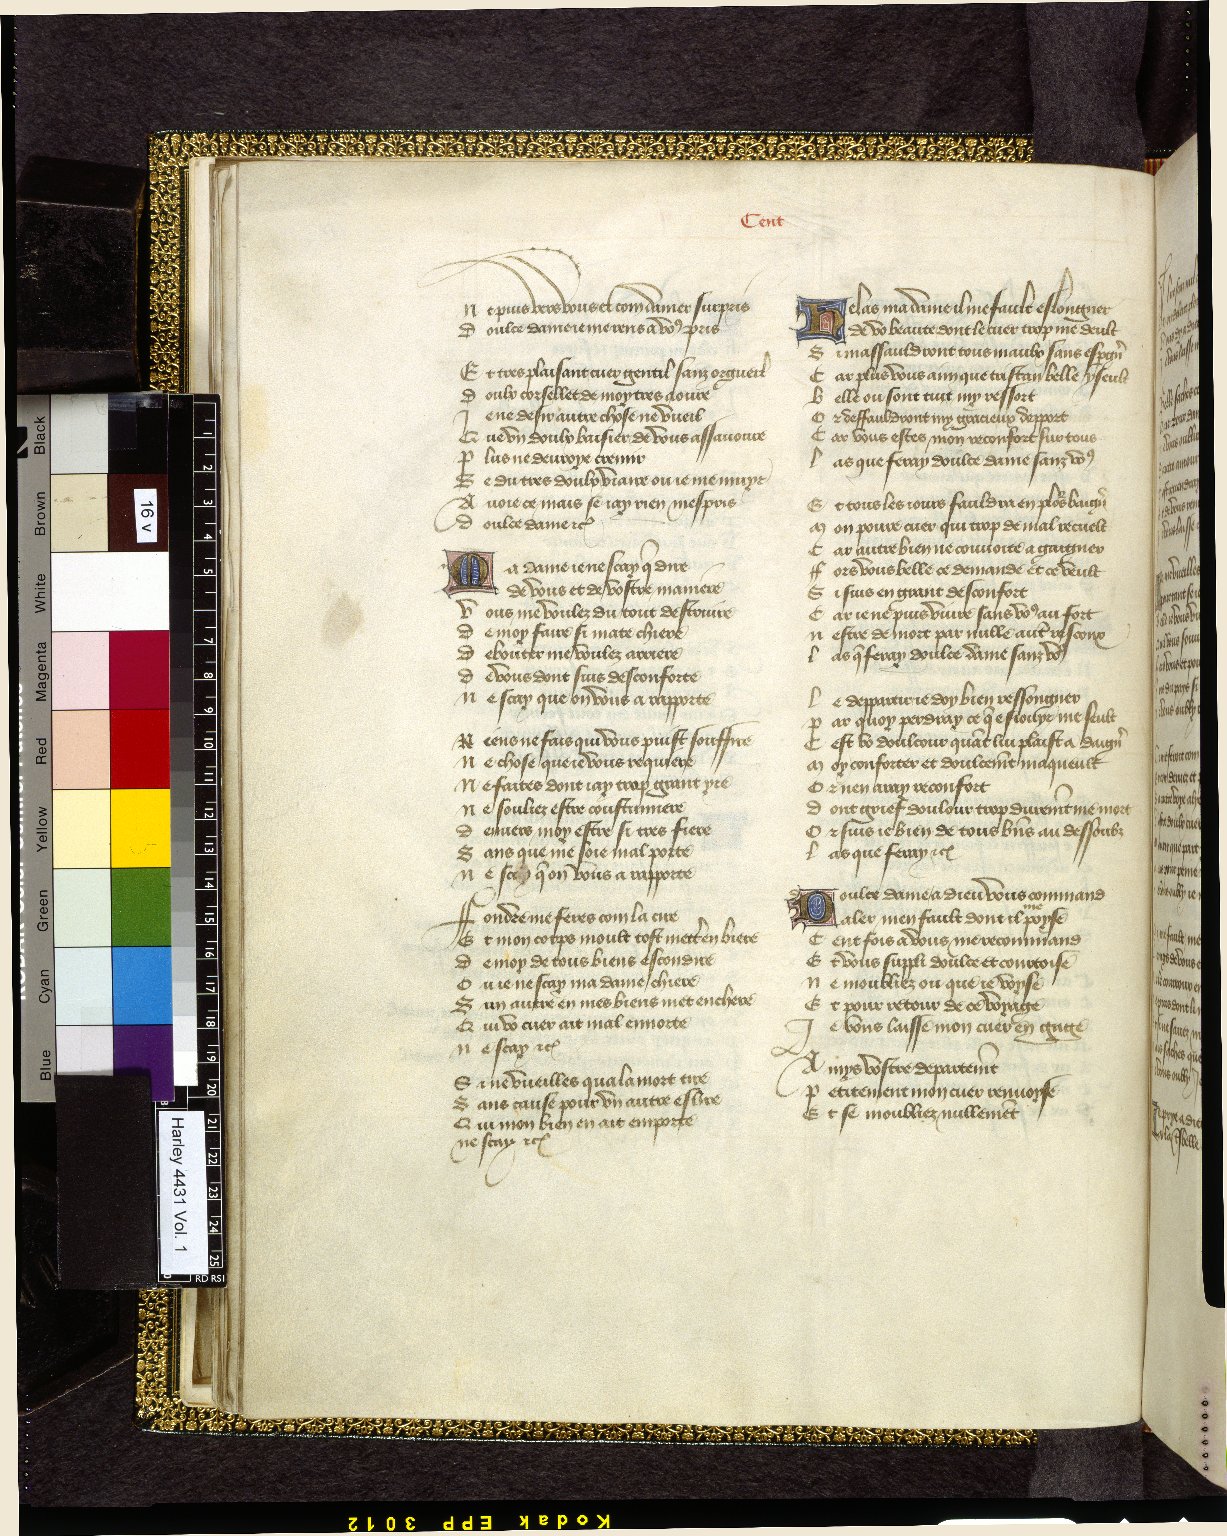 Cent
N e puis vers vous et com damer surpris
D oulce dame ie me rens a voꝰ pris
E t tres plaisant cuer gentil sanz orgueil
D oulz corsellet de moy tres aouré
J e ne desir autre chose ne vueil
Q ue vn doulz baisier de vous assauouré
P lus ne deuroye cremir
E t du tres doulz viaire ou ie me mire
A uoie ce mais se iay rien mespris
D oulce dame ⁊c̃
M a dame ie ne scay q̃ dire
de vous et de vostre maniere
V ous me voulez du tout destruire
D e moy faire si mate chiere
D ebouter me voulez arriere
D e vous dont suis desconforte
N e scay que on vous a rapporte
R iens ne fais qui vous puist souffire
N e chose que ie vous requiere
N e faites dont iay trop grant yre
N e souliez estre coustumiere
D enuers moy estre si tres fiere
S ans que me soie mal porte
N e scay q̃ on vous a rapporte
ff ondre me feres com la cire
E t mon corps moult tost mettre en biere
D e moy de tous biens escondire
O u ie ne scay ma dame chiere
S un autre en mes biens met enchere
Q ui vo cuer ait mal ennorte
N e scay ⁊c̃
S i ne vueilles qua la mort tire
S ans cause pour vn autre eslire
Q ui mon bien en ait emporte
ne scay ⁊c̃
H elas ma dame il me fault eslongner
de vo beaute dont le cuer trop me deult
S i massauldront tous maulx sans espgn̄
C ar plus vous aim que tristan belle yseult
B elle ou sont tuit my ressort
O r deffauldront my gracieux depport
C ar vous estes mon reconfort sur tous
L as que feray doulce dame sanz voꝰ
E t tous les iours fauldra en plōs baign̄
M on poure cuer qui trop de mal recuelt
C ar autre bien ne couuoite a gaigner
ff ors vous belle ce demande et ce veult
S i suis en grant desconfort
C ar ie ne puis viure sans voꝰ au fort
N estre de mort par nulle autr̄ rescoux
L as q̃ feray doulce dame sanz voꝰ
L e departir ie doy bien ressongner
P ar quoy perdray ce q̃ esiouyr me seult
C est vo doulcour quāt lui plaist a daign̄
M oy conforter et doulcemt̄ maqueult
O r nen auray reconfort
D ont grief doulour trop duremt̄ me mort
O r suis ie bien de tous bn̄s au dessoubz
L as que feray ⁊c̃
D oulce dame a dieu vous command
aler men fault dont il me poyse
C ent fois a vous me recommand
E t vous suppli doulce et courtoise
N e moubliez ou que ie voyse
E t pour retour de ce voyage
J e vous laisse mon cuer en gage
A mys vostre departemt̄
P etitement mon cuer renuoyse
E t se moubliez nullemēt
Black
Brown
White
Magenta
Red
Yellow
Green
Cyan
Blue
16 v
Harley 4431 Vol. 1
1
2
3
4
5
7
8
9
10
11
12
13
14
15
16
17
18
19
20
21
22
23
24
25
RD RSI
Kodak EPP 3012